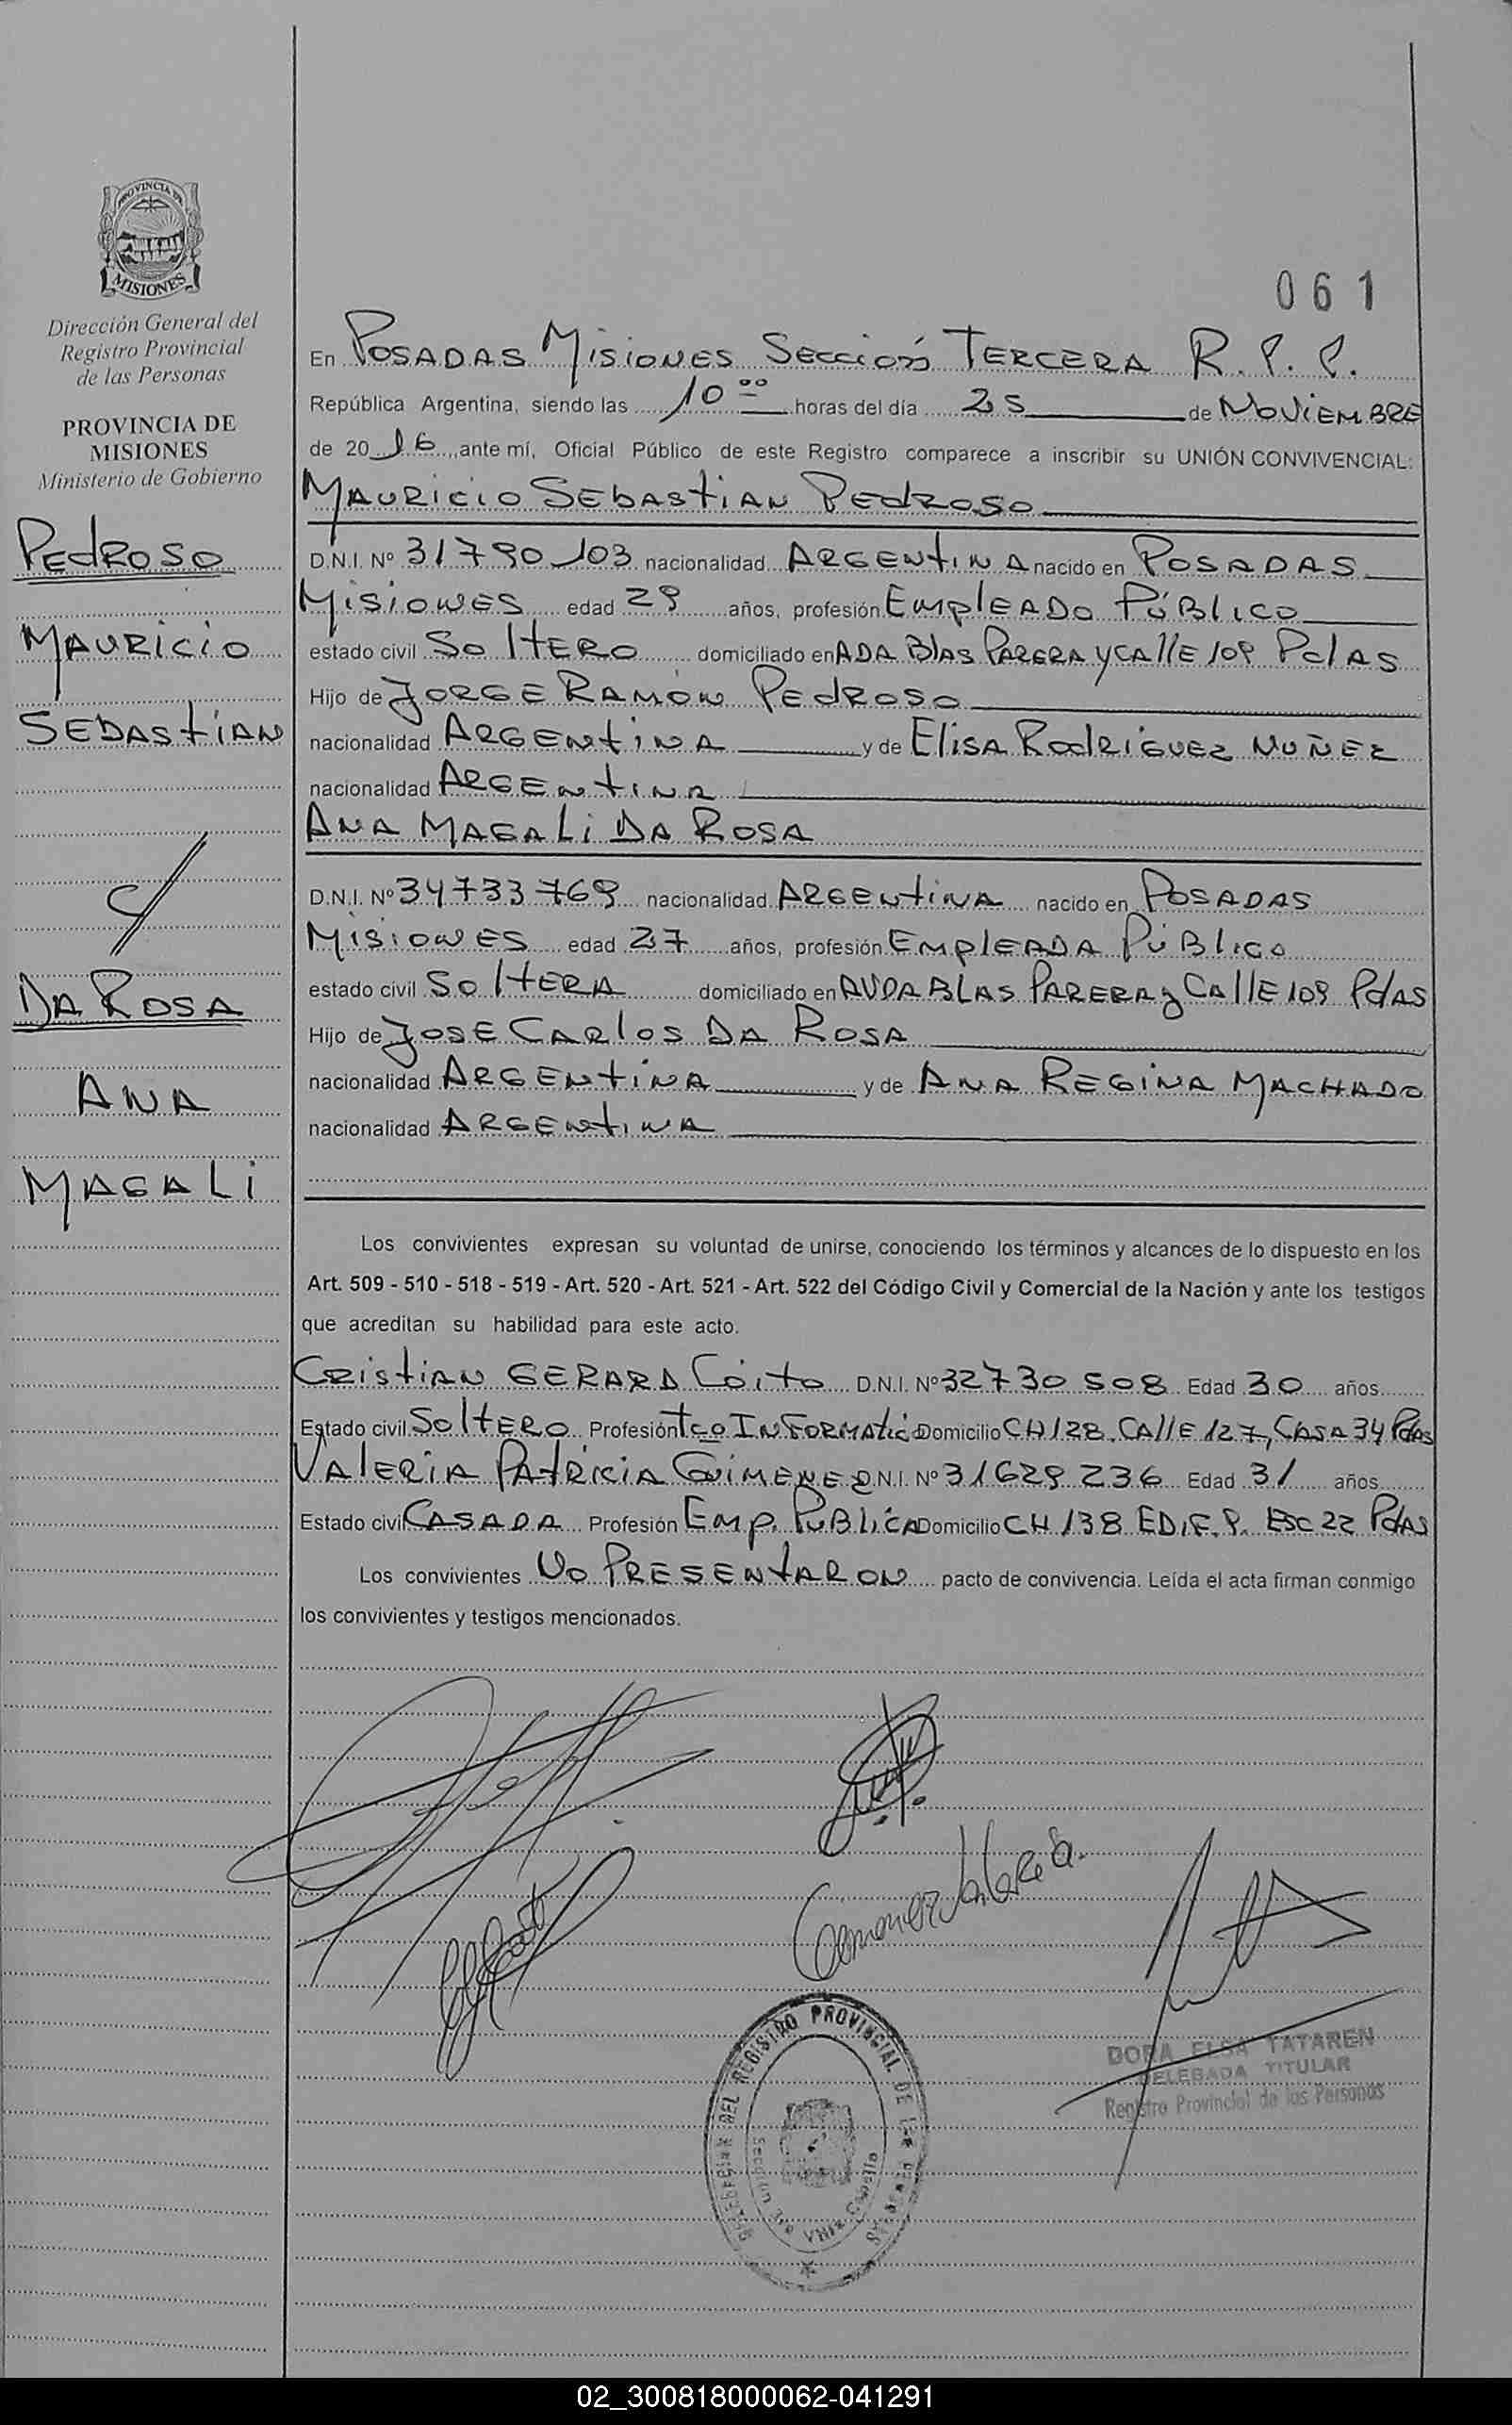 PROVINCIA DE
MISIONES
Dirección General del
Registro Provincial
de las Personas
PROVINCIA DE
MISIONES
Ministerio de Gobierno
PEDROSO
MAURICIO
SEBASTIAN
c/
DA ROSA
ANA
MAGALI
061
En POSADAS MISIONES SECCIÓN TERCERA R. P. P.
República Argentina, siendo las 10 00 horas del día 25 de NOVIEMBRE
de 2016, ante mí, Oficial Público de este Registro comparece a inscribir su UNIÓN CONVIVENCIAL:
MAURICIO SEBASTIAN PEDROSO
D.N.I. Nº 31790103 nacionalidad ARGENTINA nacido en POSADAS
MISIONES edad 29 años, profesión EMPLEADO PÚBLICO
estado civil SOLTERO domiciliado en ADA BLAS PARERA Y CALLE 109 PdAS
Hijo de JORGE RAMÓN PEDROSO
nacionalidad ARGENTINA y de ELISA RODRIGUEZ NUÑEZ
nacionalidad ARGENTINA
ANA MAGALI DA ROSA
D.N.I. Nº 34733769 nacionalidad ARGENTINA nacido en POSADAS
MISIONES edad 27 años, profesión EMPLEADA PÚBLICO
estado civil SOLTERA domiciliado en AVDA BLAS PARERA y CALLE 109 PdAS
Hijo de JOSE CARLOS DA ROSA
nacionalidad ARGENTINA y de ANA REGINA MACHADO
nacionalidad ARGENTINA
Los convivientes expresan su voluntad de unirse, conociendo los términos y alcances de lo dispuesto en los
Art. 509 - 510 - 518 - 519 - Art. 520 - Art. 521 - Art. 522 del Código Civil y Comercial de la Nación y ante los testigos
que acreditan su habilidad para este acto.
CRISTIAN GERARD COITO D.N.I. Nº 32730508 Edad 30 años
Estado civil SOLTERO Profesión TCO INFORMATICO Domicilio CH 128, CALLE 127, CASA 34 PdAS
VALERIA PATRICIA GIMENEZ D.N.I. Nº 31629236 Edad 31 años
Estado civil CASADA Profesión EMP. PUBLICA Domicilio CH 138 EDIF. P. ESC 22 PdAS
Los convivientes NO PRESENTARON pacto de convivencia. Leída el acta firman conmigo
los convivientes y testigos mencionados.
Valeria
REGISTRO PROVINCIAL DE LAS PERSONAS
DORA ELSA TATAREN
DELEGADA TITULAR
Registro Provincial de las Personas
02_300818000062-041291